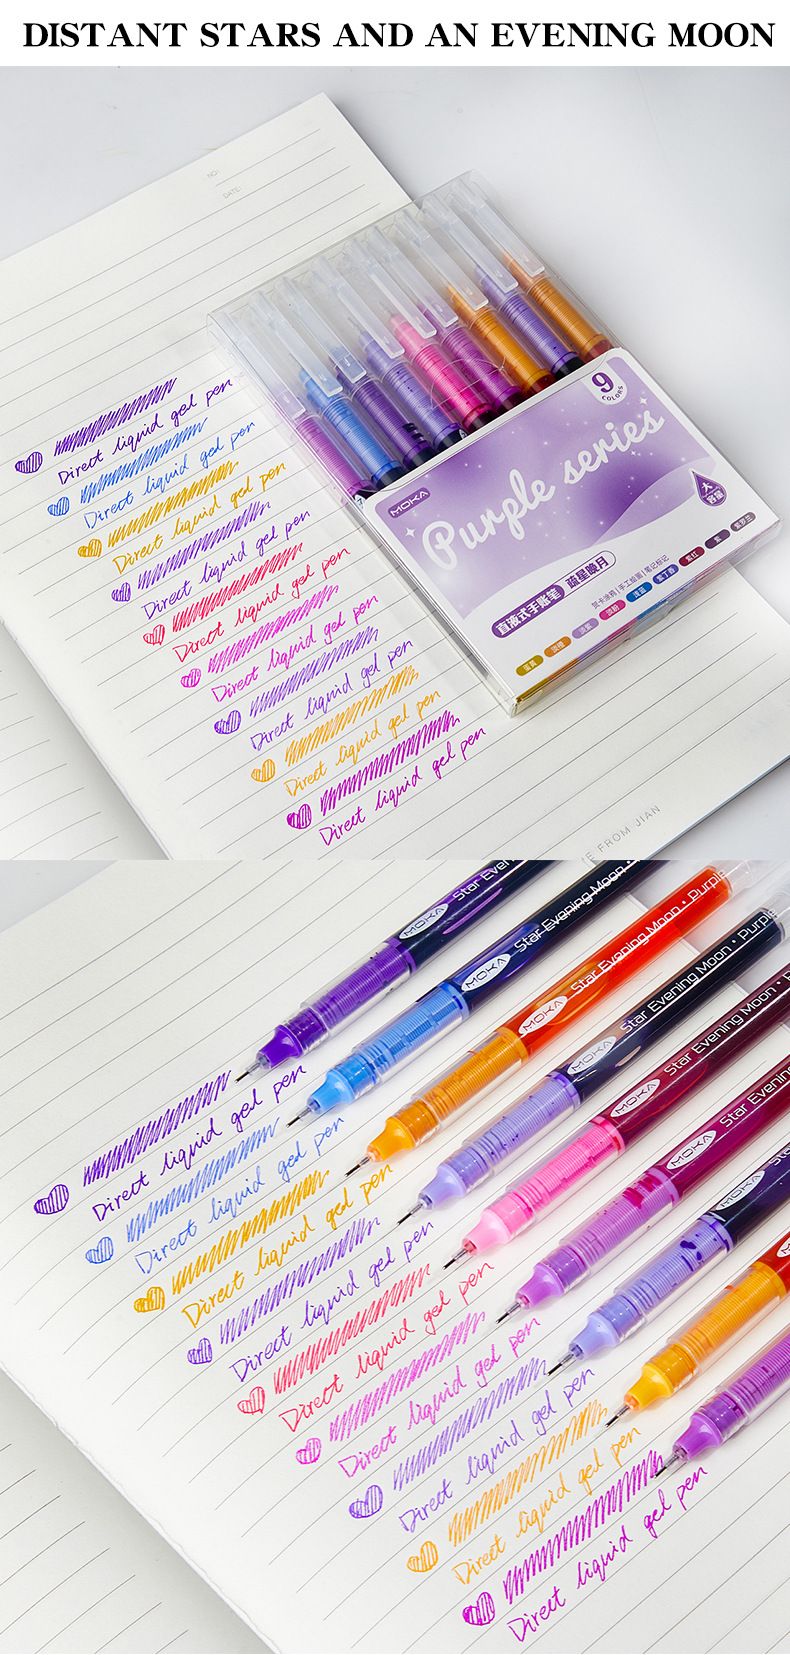 DISTANT STARS AND AN EVENING MOON
NO:
DATE:
9
COLORS
MOKA
Purple series
大
容量
直液式手账笔 疏星晚月
贺卡涂鸦|手工绘画|笔记标记
蛋黄 淡橙 浅紫 浅粉 浅蓝 紫丁香 紫红 紫 紫罗兰
Direct liquid gel pen
Direct liquid gel pen
Direct liquid gel pen
Direct liquid gel pen
Direct liquid gel pen
Direct liquid gel pen
Direct liquid gel pen
Direct liquid gel pen
Direct liquid gel pen
E FROM JIAN
MOKA Star Even
MOKA Star Evening Moon •
MOKA Star Evening Moon • Purple
MOKA Star Evening Moon • Purple
MOKA Star Evening Moon •
MOKA Star Evening
MOKA
MOKA
Direct liquid gel pen
Direct liquid gel pen
Direct liquid gel pen
Direct liquid gel pen
Direct liquid gel pen
Direct liquid gel pen
Direct liquid gel pen
Direct liquid gel pen
Direct liquid gel pen